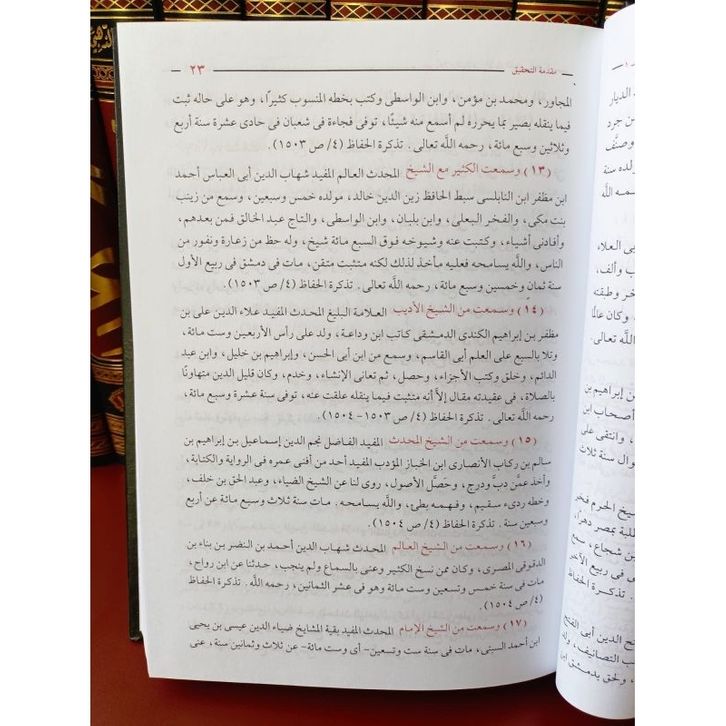 مقدمة التحقيق ٢٣
المجاور، ومحمد بن مؤمن، وابن الواسطى وكتب بخطه المنسوب كثيرًا، وهو على حاله ثبت
فيما ينقله بصير بما يحرره لم أسمع منه شيئًا، توفى فجاءة فى شعبان فى حادى عشرة سنة أربع
وثلاثين وسبع مائة، رحمه اللَّه تعالى. تذكرة الحفاظ (٤/ ص ١٥٠٣).
(١٣) وسمعت الكثير مع الشيخ المحدث العالم المفيد شهاب الدين أبى العباس أحمد
ابن مظفر ابن النابلسى سبط الحافظ زين الدين خالد، مولده خمس وسبعين، وسمع من زينب
بنت مكى، والفخر البعلى، وابن بلبان، وابن الواسطى، والتاج عبد الخالق فمن بعدهم،
وأفادنى أشياء، وكتبت عنه وشيوخه فوق السبع مائة شيخ، وله حظ من زعارة ونفور من
الناس، واللَّه يسامحه فعليه مآخذ لذلك لكنه متثبت متقن، مات فى دمشق فى ربيع الأول
سنة ثمان وخمسين وسبع مائة، رحمه اللَّه تعالى. تذكرة الحفاظ (٤/ ص ١٥٠٣).
(١٤) وسمعت من الشيخ الأديب العلامة البليغ المحدث المفيد علاء الدين على بن
مظفر بن إبراهيم الكندى الدمشقى كاتب ابن وداعة، ولد على رأس الأربعين وست مائة،
وتلا بالسبع على العلم أبى القاسم، وسمع من ابن أبى الحسن، وإبراهيم بن خليل، وابن عبد
الدائم، وخلق وكتب الأجزاء، وحصل، ثم تعانى الإنشاء، وخدم، وكان قليل الدين متهاونًا
بالصلاة، فى عقيدته مقال إلاَّ أنه متثبت فيما ينقله علقت عنه، توفى سنة عشرة وسبع مائة،
رحمه اللَّه تعالى. تذكرة الحفاظ (٤/ ص ١٥٠٣- ١٥٠٤).
(١٥) وسمعت من الشيخ المحدث المفيد الفاضل نجم الدين إسماعيل بن إبراهيم بن
سالم بن ركاب الأنصارى ابن الخباز المؤدب المفيد أحد من أفنى عمره فى الرواية والكتابة،
وأخذ عمَّن دبَّ ودرج، وحَصَّل الأصول، روى لنا عن الشيخ الضياء، وعبد الحق بن خلف،
وخطه ردىء سقيم، وفهمه بطئ، واللَّه يسامحه. مات سنة ثلاث وسبع مائة عن أربع
وسبعين سنة. تذكرة الحفاظ (٤/ ص ١٥٠٤).
(١٦) وسمعت من الشيخ العالم المحدث شهاب الدين أحمد بن النضر بن بناء بن
الدقوقى المصرى، وكان ممن نسخ الكثير وعنى بالسماع ولم ينجب، حدثنا عن ابن رواج،
مات فى سنة خمس وتسعين وست مائة وهو فى عشر الثمانين، رحمه اللَّه. تذكرة الحفاظ
(٤/ ص ١٥٠٤).
(١٧) وسمعت من الشيخ الإمام المحدث المفيد بقية المشايخ ضياء الدين عيسى بن يحيى
ابن أحمد السبتى، مات فى سنة ست وتسعين- أى وست مائة- عن ثلاث وثمانين سنة، عنى